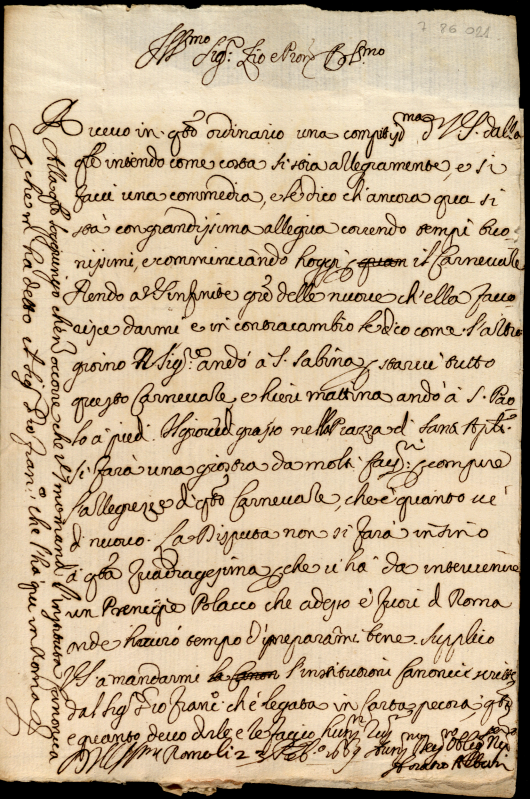 7 86 021
Ill.mo Sig.r Zio e Pron. Col.mo
Ricevo in q.to ordinario una compitiss.ma di V.S. dalla
q.le intendo come costà si stia allegramente, e si
facci una commedia, e le dico ch'ancora qua si
stà con grandissima allegria correndo tempi buo
nissimi, e comminciando hoggi quan il Carnevale
Rendo a V.S. infinite gr.e delle nuove ch'ella favo
risce darmi e in contracambio le dico come l'altro
giorno N. Sig.re andò a S. Sabina per starvi tutto
questo Carnevale, e hieri mattina andò à S. Pao
lo à piedi. Il giovedì grasso nella Piazza di Santi Ap.ti
si farà una giostra da molti Cav.ri per compire
l'allegrezze di q.to Carnevale, che è quanto v'è
di nuovo. La Disputa non si farà insino
à q.ta Quadragesima, perche vi hà da intervenire
un Prencipe Polacco che adesso è fuori di Roma
onde haverò tempo di prepararmi bene. Supplico
V.S. a mandarmi la Canon l'instituzioni Canoniche scritte
dal Sig.r Zio Fran.co ch'è legata in carta pecora, q.to
e quanto devo dirle e le faccio hum.
Di V.S. Ill.ma Roma li 2 Feb.o
Horatio Albani
Alla q.le soggiungo che non occorre che V.S. mi mandi l'instituta Canonica
perche mi ha detto il Sig. Zio Fran.co che l'hà qui in Roma